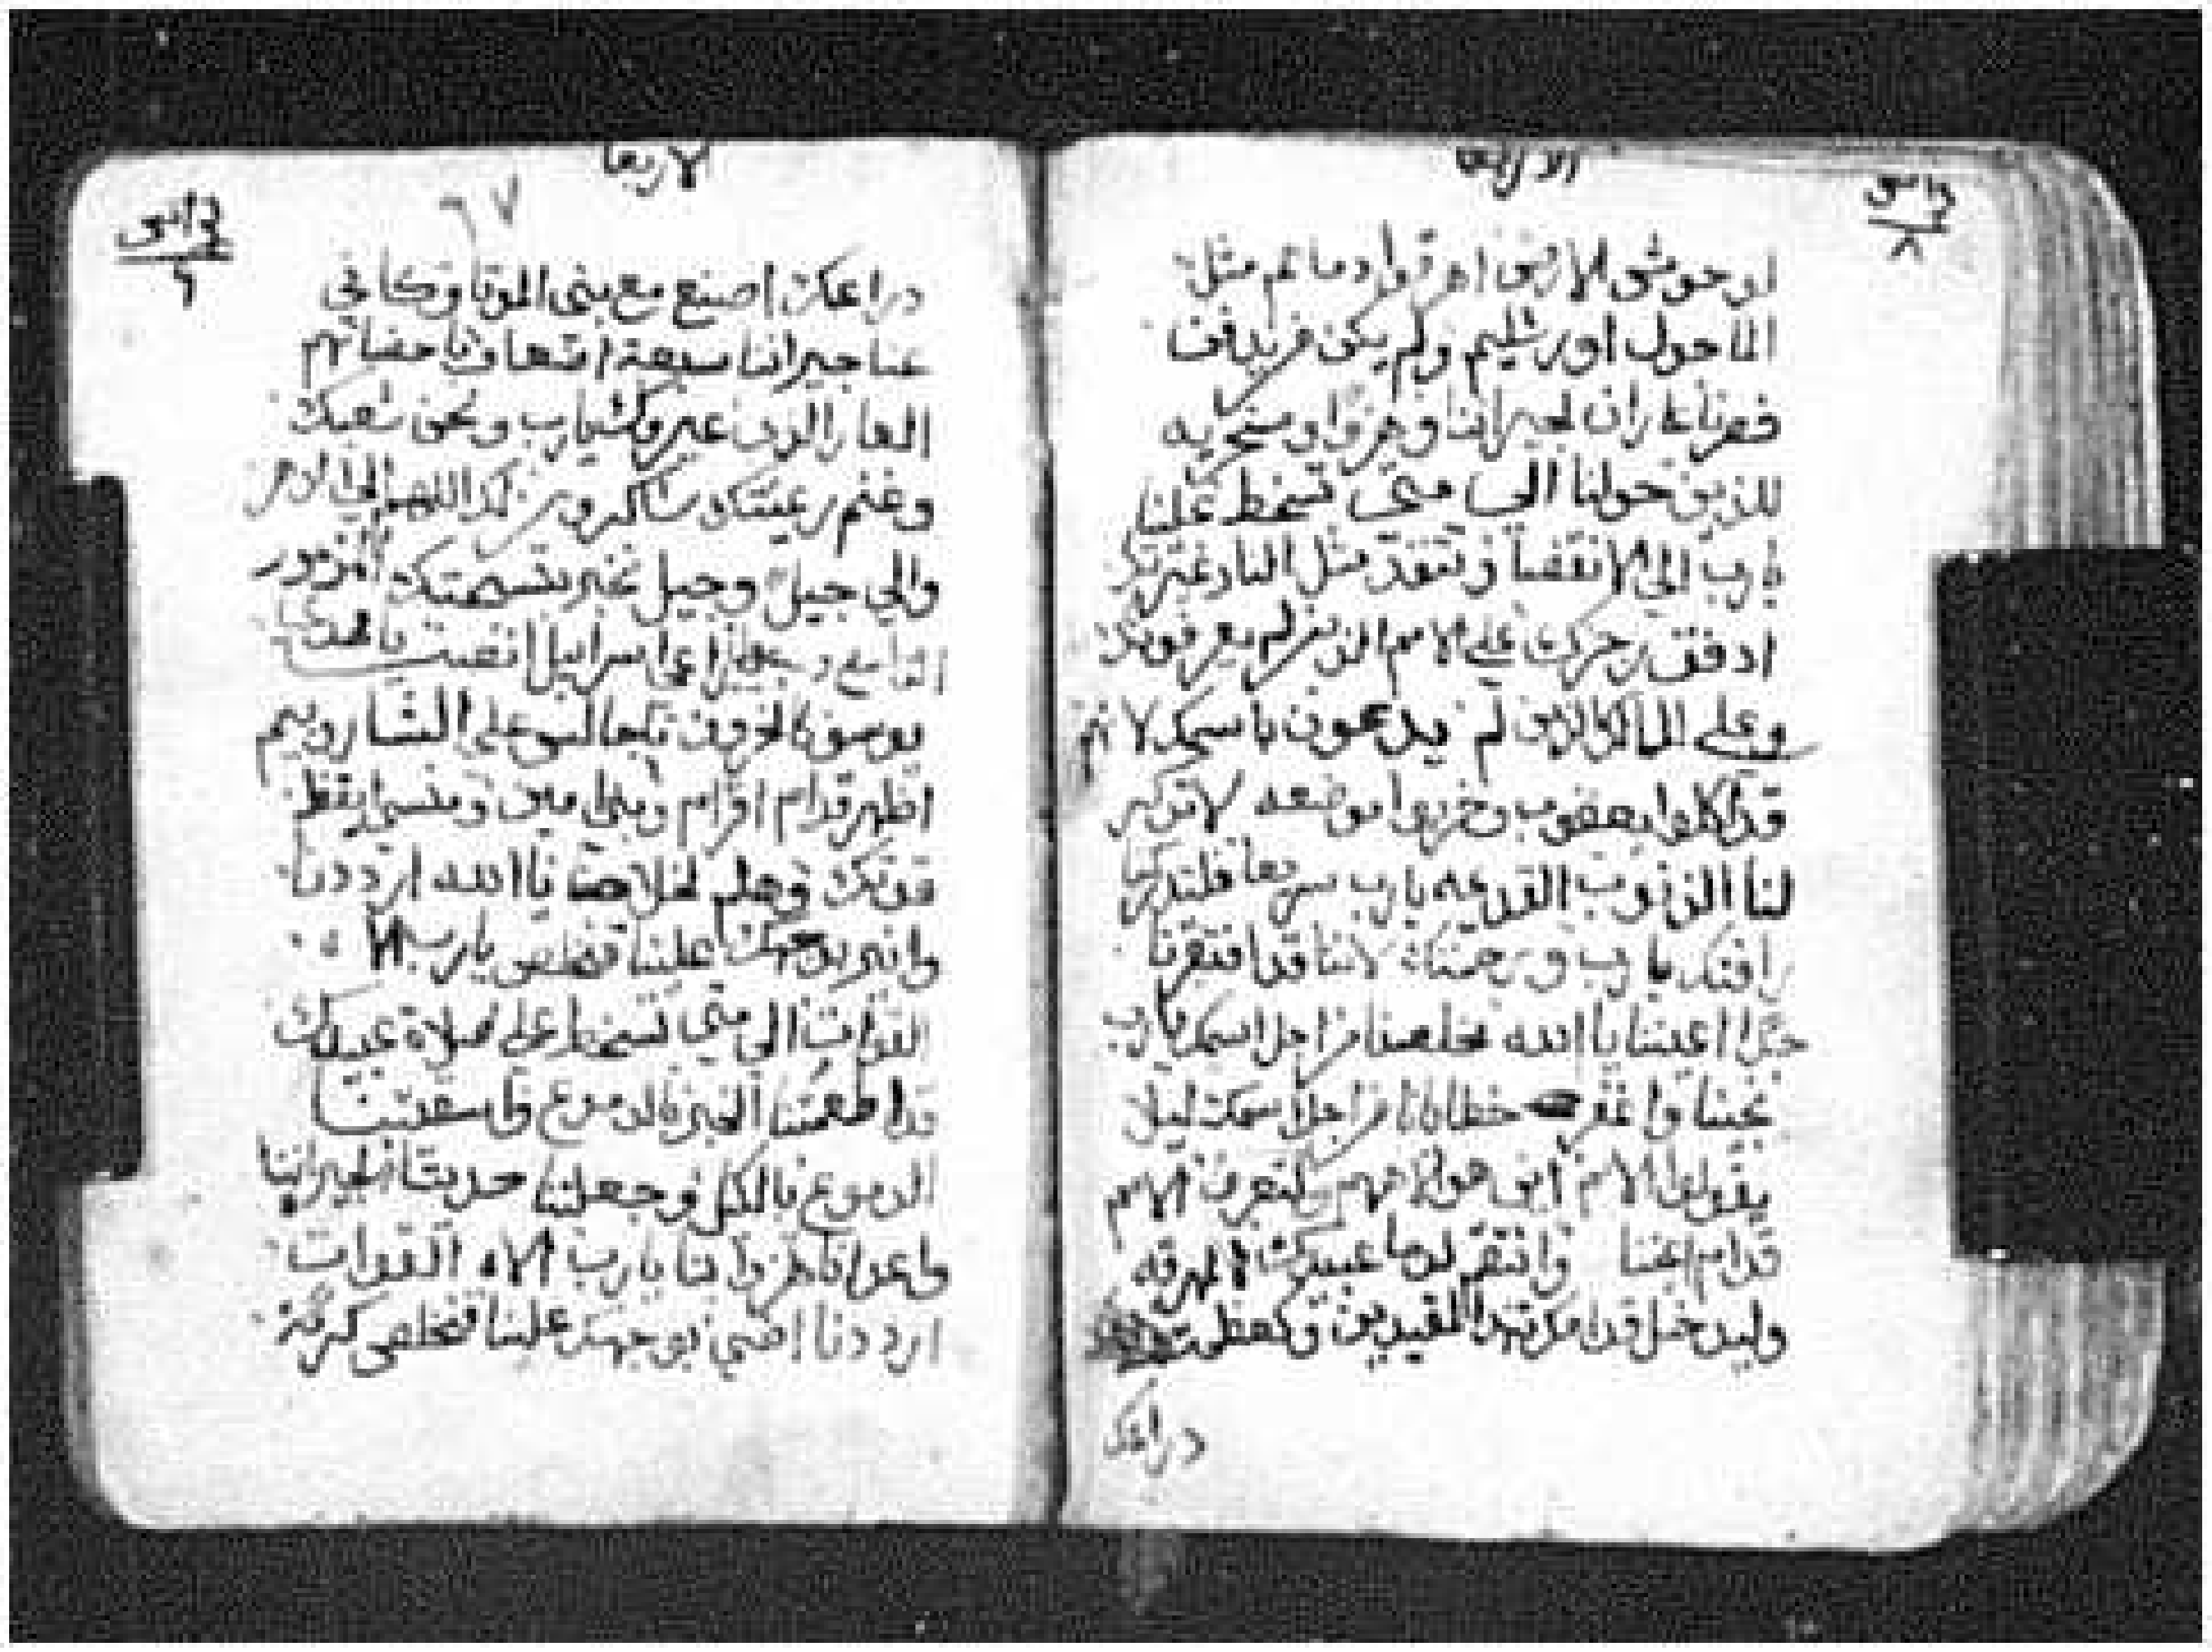 الاربعا
لوحوش الارض اهرقوا دماهم مثل
الما حول اورشليم ولم يكن من يدفن
فصرنا عاران لجيراننا وهزوا وسخريه
للذين حولنا الى متى تسخط علينا
يارب الى الانقضا وتتقد مثل النار غيرتك
ادفق رجزك على الامم الذين لم يعرفونك
وعلى الممالك الذين لم يدعون باسمك لانهم
قد اكلوا يعقوب وخربوا موضعه لا تذكر
لنا الذنوب القديمه يارب سريعا فلتدركنا
رافتك يارب ورحمتك لاننا قد افتقرنا
جدا اعيننا يا الله مخلصنا من اجل اسمك يارب
نجينا واغفر خطايانا من اجل اسمك ليلا
يقولوا الامم اين هو الاههم ولتعرف الامم
قدام اعيننا وانتقم لدما عبيدك المهرقه
وليدخل قدامك تنهد المقيدين وكعظمة
دراعك
الاربعا
٦٧
دراعك اصنع مع بني الموتا وكافى
عنا جيراننا سبعة اضعاف باحضانهم
العار الذي عيروك يارب ونحن شعبك
وغنم رعيتك نشكروك اللهم الى الابد
والى جيل وجيل نخبر بتسبحتك المزمور
ياراعي اسراييل انصت يا مهدي
يوسف كالخروف الجالس على الشاروبيم
اظهر قدام افرام وبنيامين ومنسى ايقظ
قوتك وهلم لخلاصنا يا الله ارددنا
وانير بوجهك علينا فنخلص يارب الاه
القوات الى متى تسخط على صلاة عبيدك
قد اطعمتنا الخبز بالدموع واسقيتنا
الدموع بالكيل وجعلتنا حديثا لجيراننا
واعدانا هزوا بنا يارب الاه القوات
ارددنا اضي بوجهك علينا فنخلص كرمة